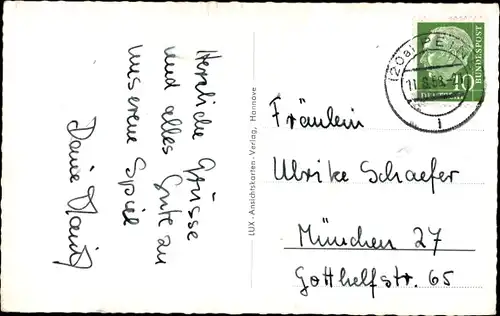 Herzliche Grüsse
und alles Gute zu
unserem Spiel
LUX - Ansichtskarten - Verlag, Hannover
(20a) PEINE
11.8.58
DEUTSCHE
BUNDESPOST
10
Fräulein
Ulrike Schaefer
München 27
Gotthelfstr. 65